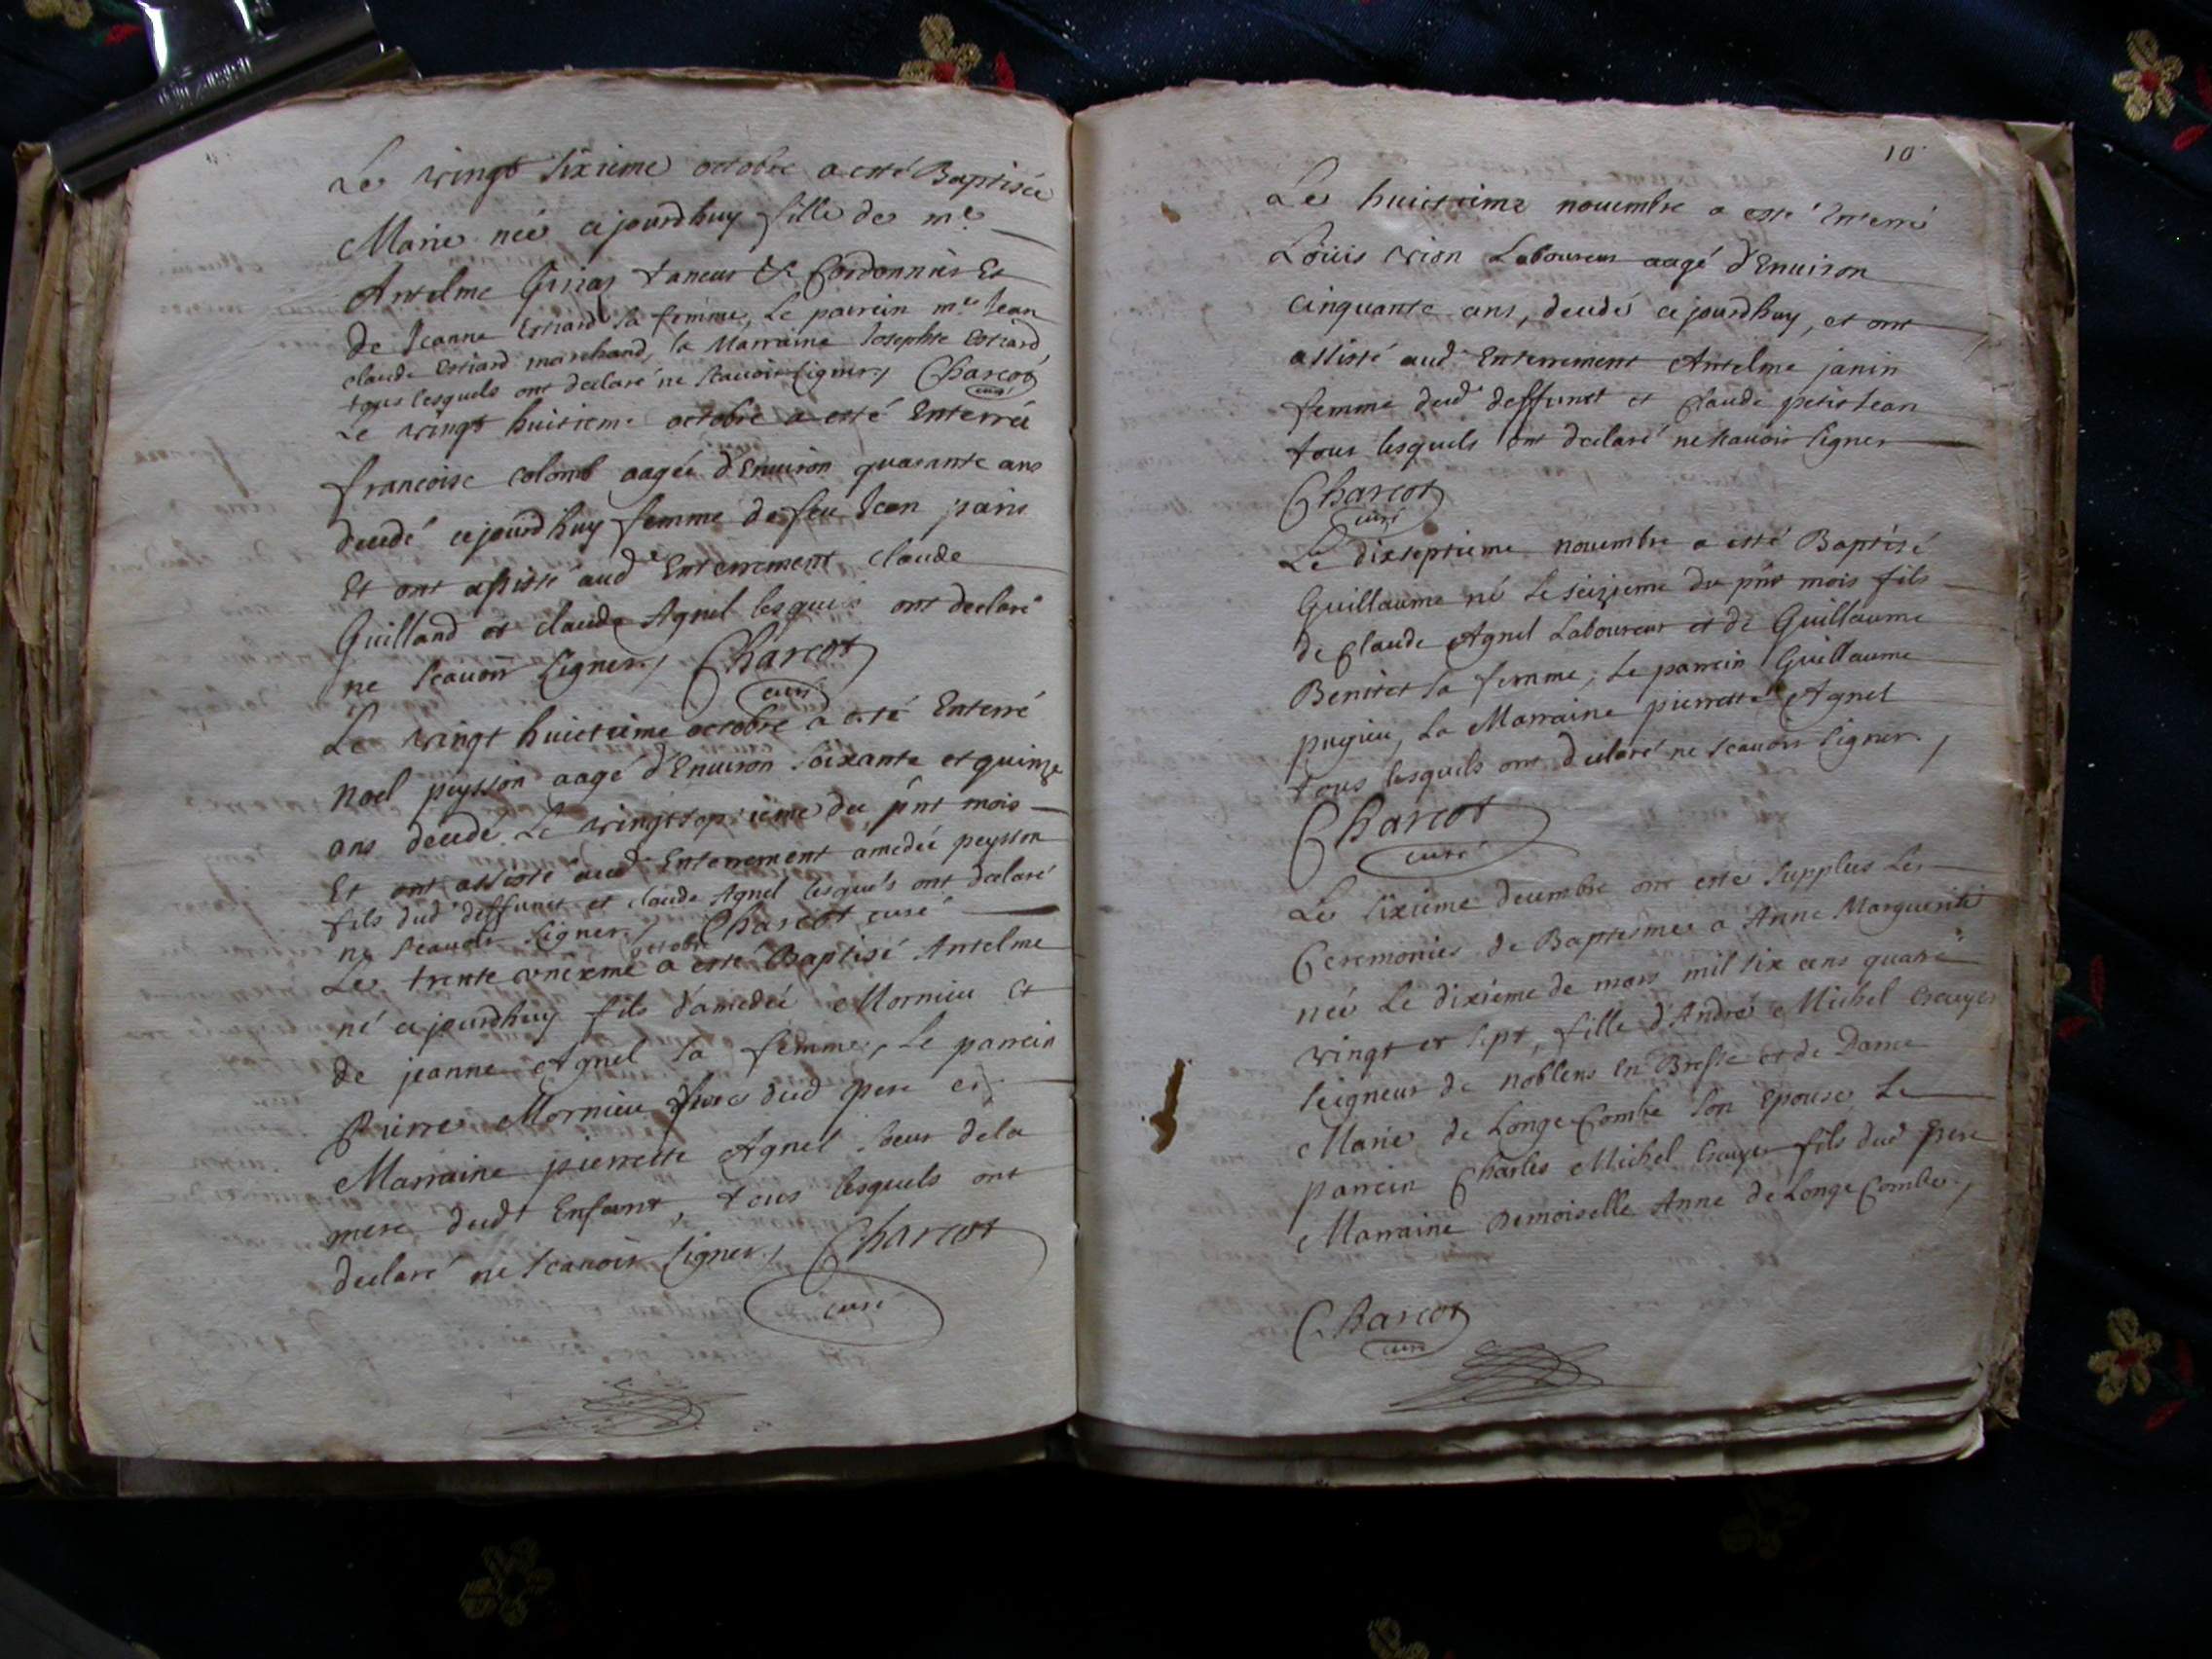 Le vingt sixieme octobre a esté Baptisée
Marie née cejourdhuy fille de me
Antelme taneur & Cordonnier Et
de Jeanne sa femme, Le parrein me Jean
claude marchand, la Marraine Josephte
tous lesquels ont declaré ne scauoir signer / Charcot
curé
Le vingt huitieme octobre a esté Enterrée
francoise colomb aagée d'Enuiron quarante ans
decedé cejourdhuy femme de feu Jean
Et ont assisté aud Enterrement claude
Guilland et claude Agnel lesquels ont declaré
ne scauoir signer / Charcot
curé
Le vingt huictieme octobre a esté Enterré
Noel peysson aagé d'Enuiron soixante et quinze
ans decede Le vingtseptieme du pnt mois
Et ont assisté aud Enterrement amedée peysson
fils dud deffunct et claude Agnel lesquels ont declaré
ne scauoir signer / Charcot curé
Le trente vnieme octobre a esté Baptisé Antelme
né cejourdhuy fils d'amedée Mornieu Et
de jeanne Agnel sa femme, Le parrein
Pierre Mornieu frere dud pere et
Marraine pierrette Agnel soeur dela
mere dud Enfant, tous lesquels ont
declaré ne scauoir signer / Charcot
curé
10
Le huictieme nouembre a esté Enterré
Loüis vion Laboureur aagé d'Enuiron
cinquante ans, decedé cejourdhuy, et ont
assisté aud Enterrement Antelme janin
femme dud deffunct et Claude petit Jean
tous lesquels ont declaré ne scauoir signer
Charcot
curé
Le dixseptieme nouembre a esté Baptisé
Guillaume né Le seizieme du pnt mois fils
de Claude Agnel Laboureur et de Guillaume
Benitet sa femme, Le parrein Guillaume
pugieu, La Marraine pierrette Agnel
tous lesquels ont declaré ne scauoir signer /
Charcot
curé
Le sixieme decembre ont esté supplees Les
Ceremonies de Baptesmes a Anne Marguerite
née Le dixieme de mars mil six cens quatre
vingt et sept, fille d'André Michel Escuyer
seigneur de noblens en Bresse et de Dame
Marie de Longe Combe son Epouse Le
parrein Charles Michel Escuyer fils dud pere
Marraine Demoiselle Anne de Longe Combe /
Charcot
curé